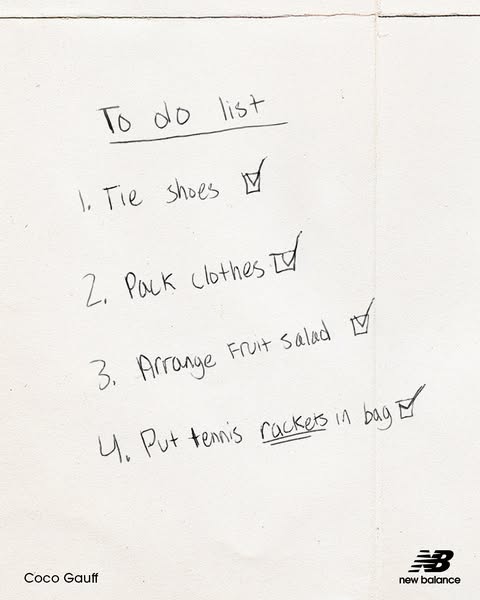 To do list
1. Tie shoes
2. Pack clothes
3. Arrange Fruit salad
4. Put tennis rackets in bag
Coco Gauff
NB
new balance